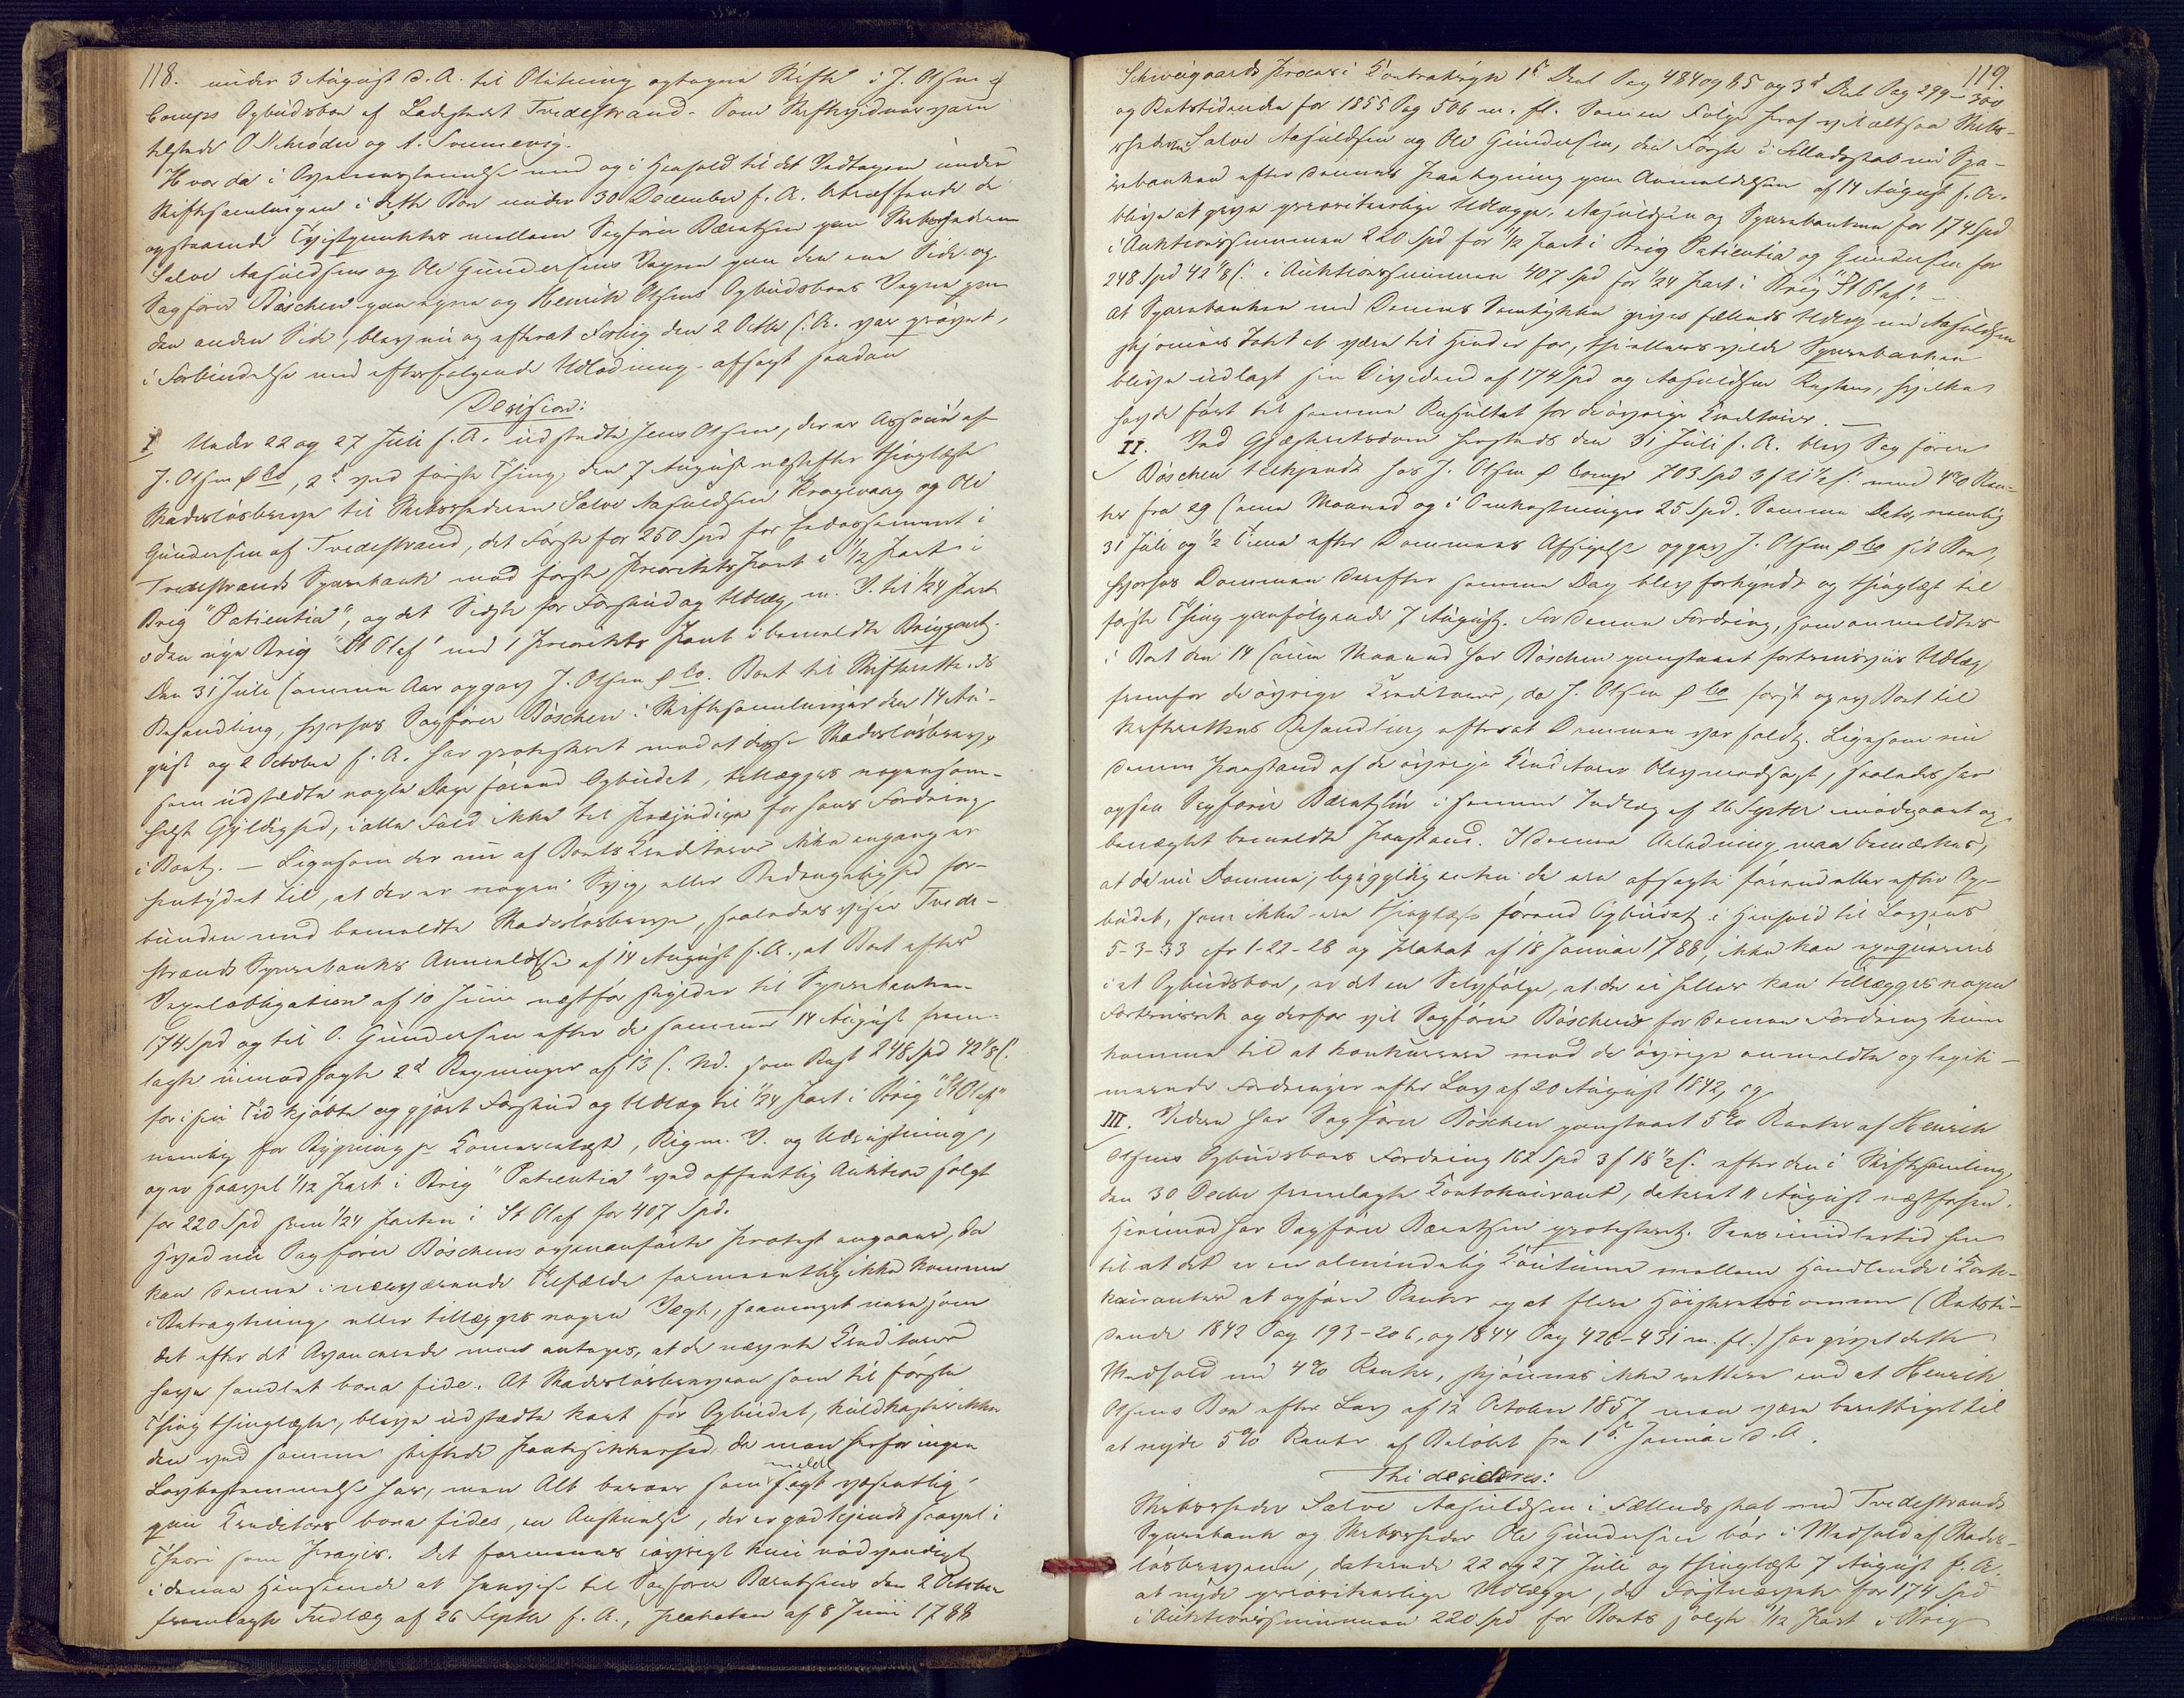 118.
under 3 August d. A. til Slutning optagne Skifte i J. Olsen &
Comps Opbudsbo af Ladestedet Tvedestrand. Som Skiftevidner vare
tilstede O Schrøder og A. Svennevig.
Hvor da i Overensstemmelse med og i Henhold til det Vedtagne under
Skiftesamlingen i dette Bo under 30 December f. A. betræffende de
opstaaende Tvistpunkter mellem Sagfører Bærentsen paa Skibsrhederne
Salve Aasuldsens og Ole Gundersens Vegne paa den ene Side og
Sagfører Bøschen paa egne og Henrik Olsens Opbudsboes Vegne paa
den anden Side, blev nu og efterat Forlig den 2 Octbr f. A. var prøvet,
i Forbindelse med efterfølgende Udlodning afsagt saadan
Decision:
I Under 22 og 27 Juli f. A. udstedte Jens Olsen, der er Associé af
J. Olsen & Co, 2de ved første Thing, den 7 August næstefter thinglæste
Skadesløsbreve til Skibsrhederne Salve Aasuldsen Krogevaag og Ole
Gundersen af Tvedestrand, det Første for 250 Spd for Endossement i
Tvedestrands Sparebank mod første Prioritets Pant i 1/12 Part i
Brig "Patientia", og det Sidste for Forskud og Udlæg m. V. til 1/24 Part
i den nye Brig "St Olaf" med 1 Prioritets Pant i bemeldte Brigpart.
Den 31 Juli samme Aar opgav J. Olsen & Co. Boet til Skifterettens
Behandling, hvorhos Sagfører Bøschen i Skiftesamlinger den 14 Au-
gust og 2 October f. A. har protesteret mod at disse Skadesløsbreve
som udstedte nogle Dage førend Opbudet, tillægges nogensom-
helst Gyldighed, i alle Fald ikke til Præjudice for hans Fordring
i Boet. – Ligesom der nu af Boets Creditorer ikke engang er
hentydet til, at der er nogen Svig, eller Bedragelighed for-
bunden med bemeldte Skadesløsbreve, saaledes viser Tvede-
strands Sparebanks Anmeldelse af 14 August f. A., at Boet efter
Vexelobligation af 10 Juni næstfør skylder til Sparebanken
174 Spd og til O. Gundersen efter de samme 14 August frem-
lagte uimodsagte 2de Regninger af 13 s. Md. som Rest 248 Spd 42 1/8 s.
for i sin Tid kjøbte og gjort Forskud og Udlæg til 1/24 Part i Brig "St Olaf"
nemlig for Bygning pr Commercelæst, Rig m. V. og Udrustning,
og er saavel 1/12 Part i Brig "Patientia" ved offentlig Auktion solgt
for 220 Spd som 1/24 Parten i St Olaf for 407 Spd.
Hvad nu Sagfører Bøschens ovenanførte Protest angaaer, da
kan denne i nærværende Tilfælde formeentlig ikke komme
i Betragtning eller tillægges nogen Vægt, saameget mere som
det efter det Avancerede maa antages, at de nævnte Creditorer
have handlet bona fide. At Skadesløsbrevene som til første
Thing thinglæste, bleve udstædte kort før Opbudet, kuldkaster ikke
den ved samme stiftede Pantesikkerhed, da man herfor ingen
Lovbestemmelse har, men Alt beroer som meldt sagt væsentlig
paa Creditors bona fides, en Anskuelse, der er godkjendt saavel i
Theori som Praxis. Det formenes iøvrigt kun nødvendigt
i denne Henseende at henvise til Sagfører Bærentsens den 2 October
fremlagte Indlæg af 26 Septbr f. A., Plakaten af 8 Juni 1788
119
Schweigaards Proces i Contraktsgte 1ste Deel Pag 484 og 85 og 3die Deel Pag 299-300
og Retstidende for 1855 Pag 506 m. fl. Som en Følge heraf vil altsaa Skibs-
rhederne Salve Aasuldsen og Ole Gundersen, den Første i Fælledsskab med Spa-
rebanken efter dennes Paategning paa Anmeldelsen af 14 August f. A.
blive at give prioritairlige Udlægge, Aasuldsen og Sparebanken for 174 Spd
i Auktionssummen 220 Spd for 1/12 Part i Brig Patientia og Gundersen for
248 Spd 42 1/8 s. i Auktionssummen 407 Spd for 1/24 Part i Brig "St Olaf". –
At Sparebanken med Dennes Samtykke gives fælleds Udlæg med Aasuldsen
skjønnes Intet at være til Hinder for, thi ellers vilde Sparebanken
blive udlagt sin Dividend af 174 Spd og Aasuldsen Resten, hvilket
havde ført til samme Resultat for de øvrige Creditorer. –
II. Ved Gjæsteretsdom herstæds den 31 Juli f. A. blev Sagfører
Bøschen tilkjendt hos J. Olsen & Comp 703 Spd 3 ₰ 21 1/2 s. med 4% Ren-
ter fra 29 samme Maaned og i Omkostninger 25 Spd. Samme Dato, nemlig
31 Juli og 1/2 Time efter Dommens Afsigelse opgav J. Olsen & Co sit Bo,
hvorhos Dommen derefter samme Dag blev forkyndt og thinglæst til
første Thing paafølgende 7 August. For denne Fordring, som anmeldtes
i Boet den 14 samme Maaned har Bøschen paastaaet fortrinsviis Udlæg
fremfor de øvrige Creditorer, da J. Olsen & Co først opgav Boet til
Skifterettens Behandling efterat Dommen var faldt. Ligesom nu
denne Paastand af de øvrige Creditorer blev modsagt, saaledes har
ogsaa Sagfører Bærentsen i samme Indlæg af 26 Septbr imødegaaet og
benægtet bemeldte Paastand. I denne Anledning maa bemærkes,
at da nu Domme, ligegyldig enten de ere afsagte førend eller efter Op-
budet, som ikke ere thinglæste førend Opbudet, i Henhold til Lovens
5-3-33 cfr 1-22-28 og Plakat af 18 Januar 1788, ikke kan exequeres
i et Opbudsbo, er det en Selvfølge, at der ei heller kan tillægges nogen
Fortrinsret og derfor vil Sagfører Bøschen for denne Fordring kun
komme til at konkurrere med de øvrige anmeldte og legiti-
merede Fordringer efter Lov af 20 August 1842, og
III. Videre har Sagfører Bøschen paastaaet 5% Renter af Henrik
Olsens Opbudsboes Fordring 162 Spd 3 ₰ 18 1/2 s. efter den i Skiftesamling
den 30 Decbr fremlagte Contokourant, dateret 11 August næstforhen.
Herimod har Sagfører Bærentsen protesteret. Sees imidlertid hen
til at det er en almindelig Coutume mellem Handlende i Conto-
kouranter at opføre Renter og at flere Høiesteretsdomme (Retsti-
dende 1842 Pag 193-206, og 1844 Pag 426-431 m. fl.) har givet dette
Medhold med 4% Renter, skjønnes ikke rettere end at Henrik
Olsens Bo efter Lov af 12 October 1857 maa være berettiget til
at nyde 5% Renter af Beløbet fra 1ste Januar d. A.
Thi decideres:
Skibsrheder Salve Aasuldsen i Fælledsskab med Tvedestrands
Sparebank og Skibsrheder Ole Gundersen bør i Medhold af Skades-
løsbrevene, daterede 22 og 27 Juli og thinglæste 7 August f. A.
at nyde prioritairlige Udlægge, de Førstnævnte for 174 Spd
i Auktionssummen 220 Spd for Boets solgte 1/12 Part i Brig